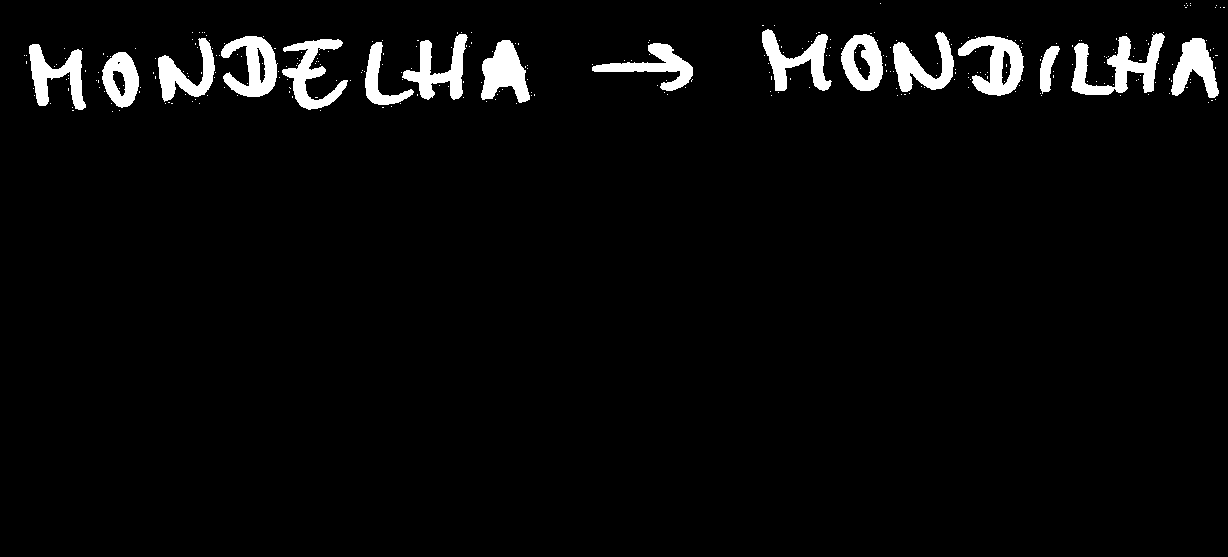 MONDELHA → MONDILHA